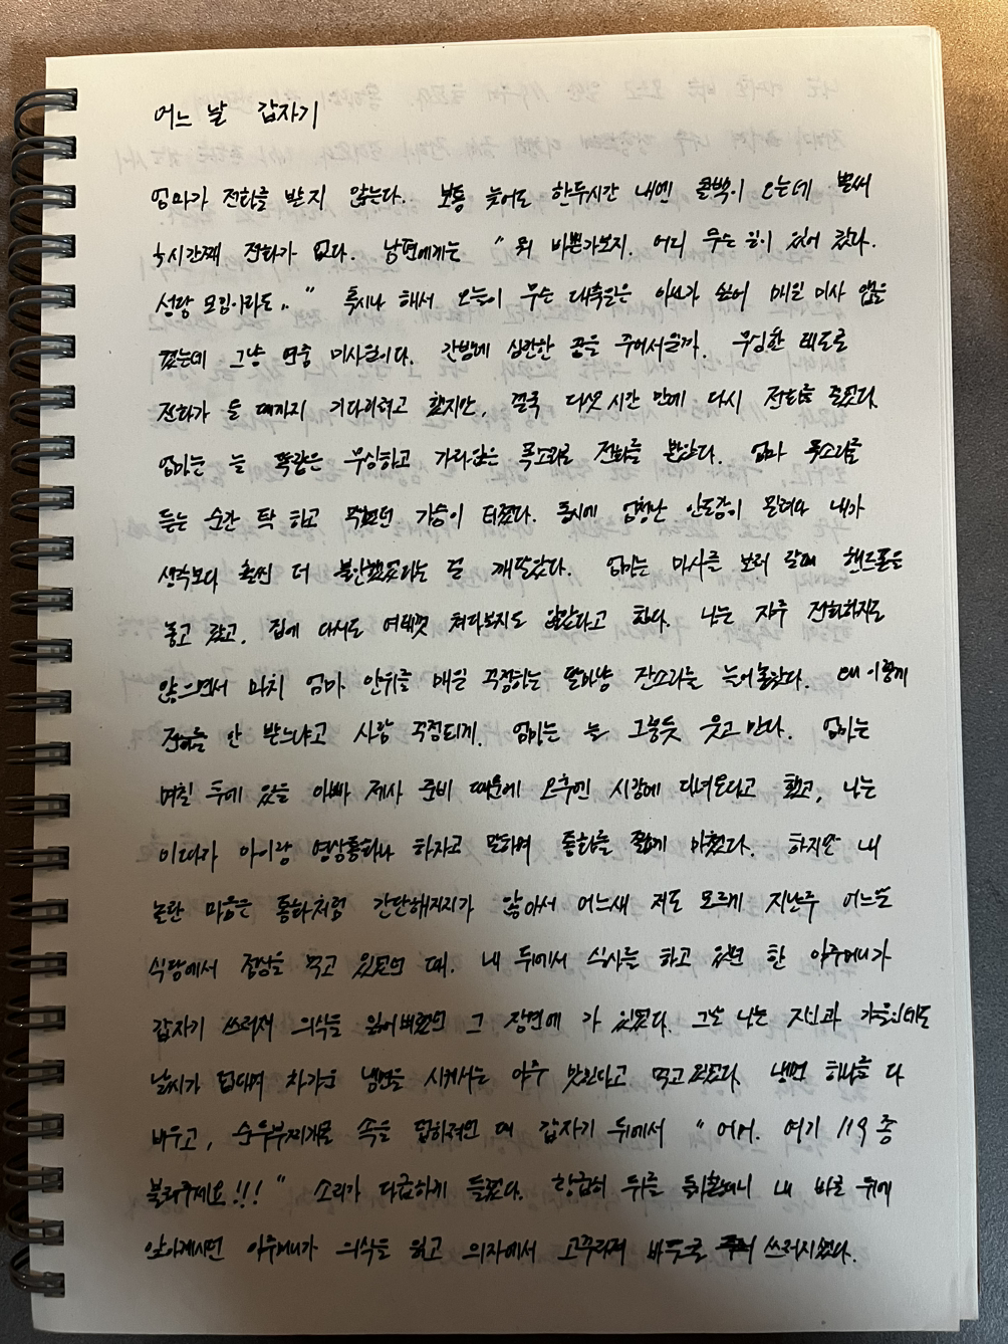 어느 날 갑자기
엄마가 전화를 받지 않는다. 보통 늦어도 한두시간 내엔 콜백이 오는데 벌써
4시간째 전화가 없다. 남편에게는 "뭐 바쁜가보지. 어디 무슨 일이 있어 갔다.
성당 모임이라도.." 혹시나 해서 오늘이 무슨 대축일은 아닌가 싶어 매일 미사 앱을
켰는데 그냥 연중 미사일이다. 간밤에 심란한 꿈을 꾸어서일까. 무심한 태도로
전화가 올 때까지 기다리려고 했지만, 결국 다섯 시간 만에 다시 전화를 걸었다.
엄마는 늘 똑같은 무심하고 가라앉은 목소리로 전화를 받았다. 엄마 목소리를
듣는 순간 탁 하고 막혔던 가슴이 터졌다. 동시에 엄청난 안도감이 몰려와 내가
생각보다 훨씬 더 불안했었다는 걸 깨달았다. 엄마는 미사를 보러 갈때 핸드폰은
놓고 갔고, 집에 와서도 여태껏 쳐다보지도 않았다고 한다. 나는 자주 전화하지도
않으면서 마치 엄마 안위를 매일 걱정하는 딸마냥 잔소리를 늘어놓았다. 왜 이렇게
전화를 안 받느냐고 사람 걱정되게. 엄마는 늘 그렇듯 웃고 만다. 엄마는
며칠 뒤에 있을 아빠 제사 준비 때문에 오후엔 시장에 다녀온다고 했고, 나는
이따가 아이랑 영상통화나 하자고 말하며 통화를 짧게 마쳤다. 하지만 내
놀란 마음은 통화처럼 간단해지지가 않아서 어느새 저도 모르게 지난주 어느
식당에서 점심을 먹고 있었던 때. 내 뒤에서 식사를 하고 있던 한 아주머니가
갑자기 쓰러져 의식을 잃어버렸던 그 장면에 가 있었다. 그날 나는 자신과 가을인데도
날씨가 덥다며 차가운 냉면을 시켜서는 아주 맛있다고 먹고 있었다. 냉면 하나를 다
비우고, 순두부찌개로 속을 덥히려던 때 갑자기 뒤에서 "어머. 여기 119 좀
불러주세요!!!" 소리가 다급하게 들렸다. 황급히 뒤를 돌아봤더니 내 바로 뒤에
앉아계시던 아주머니가 의식을 잃고 의자에서 고꾸라져 바닥으로 쓰러지셨다.